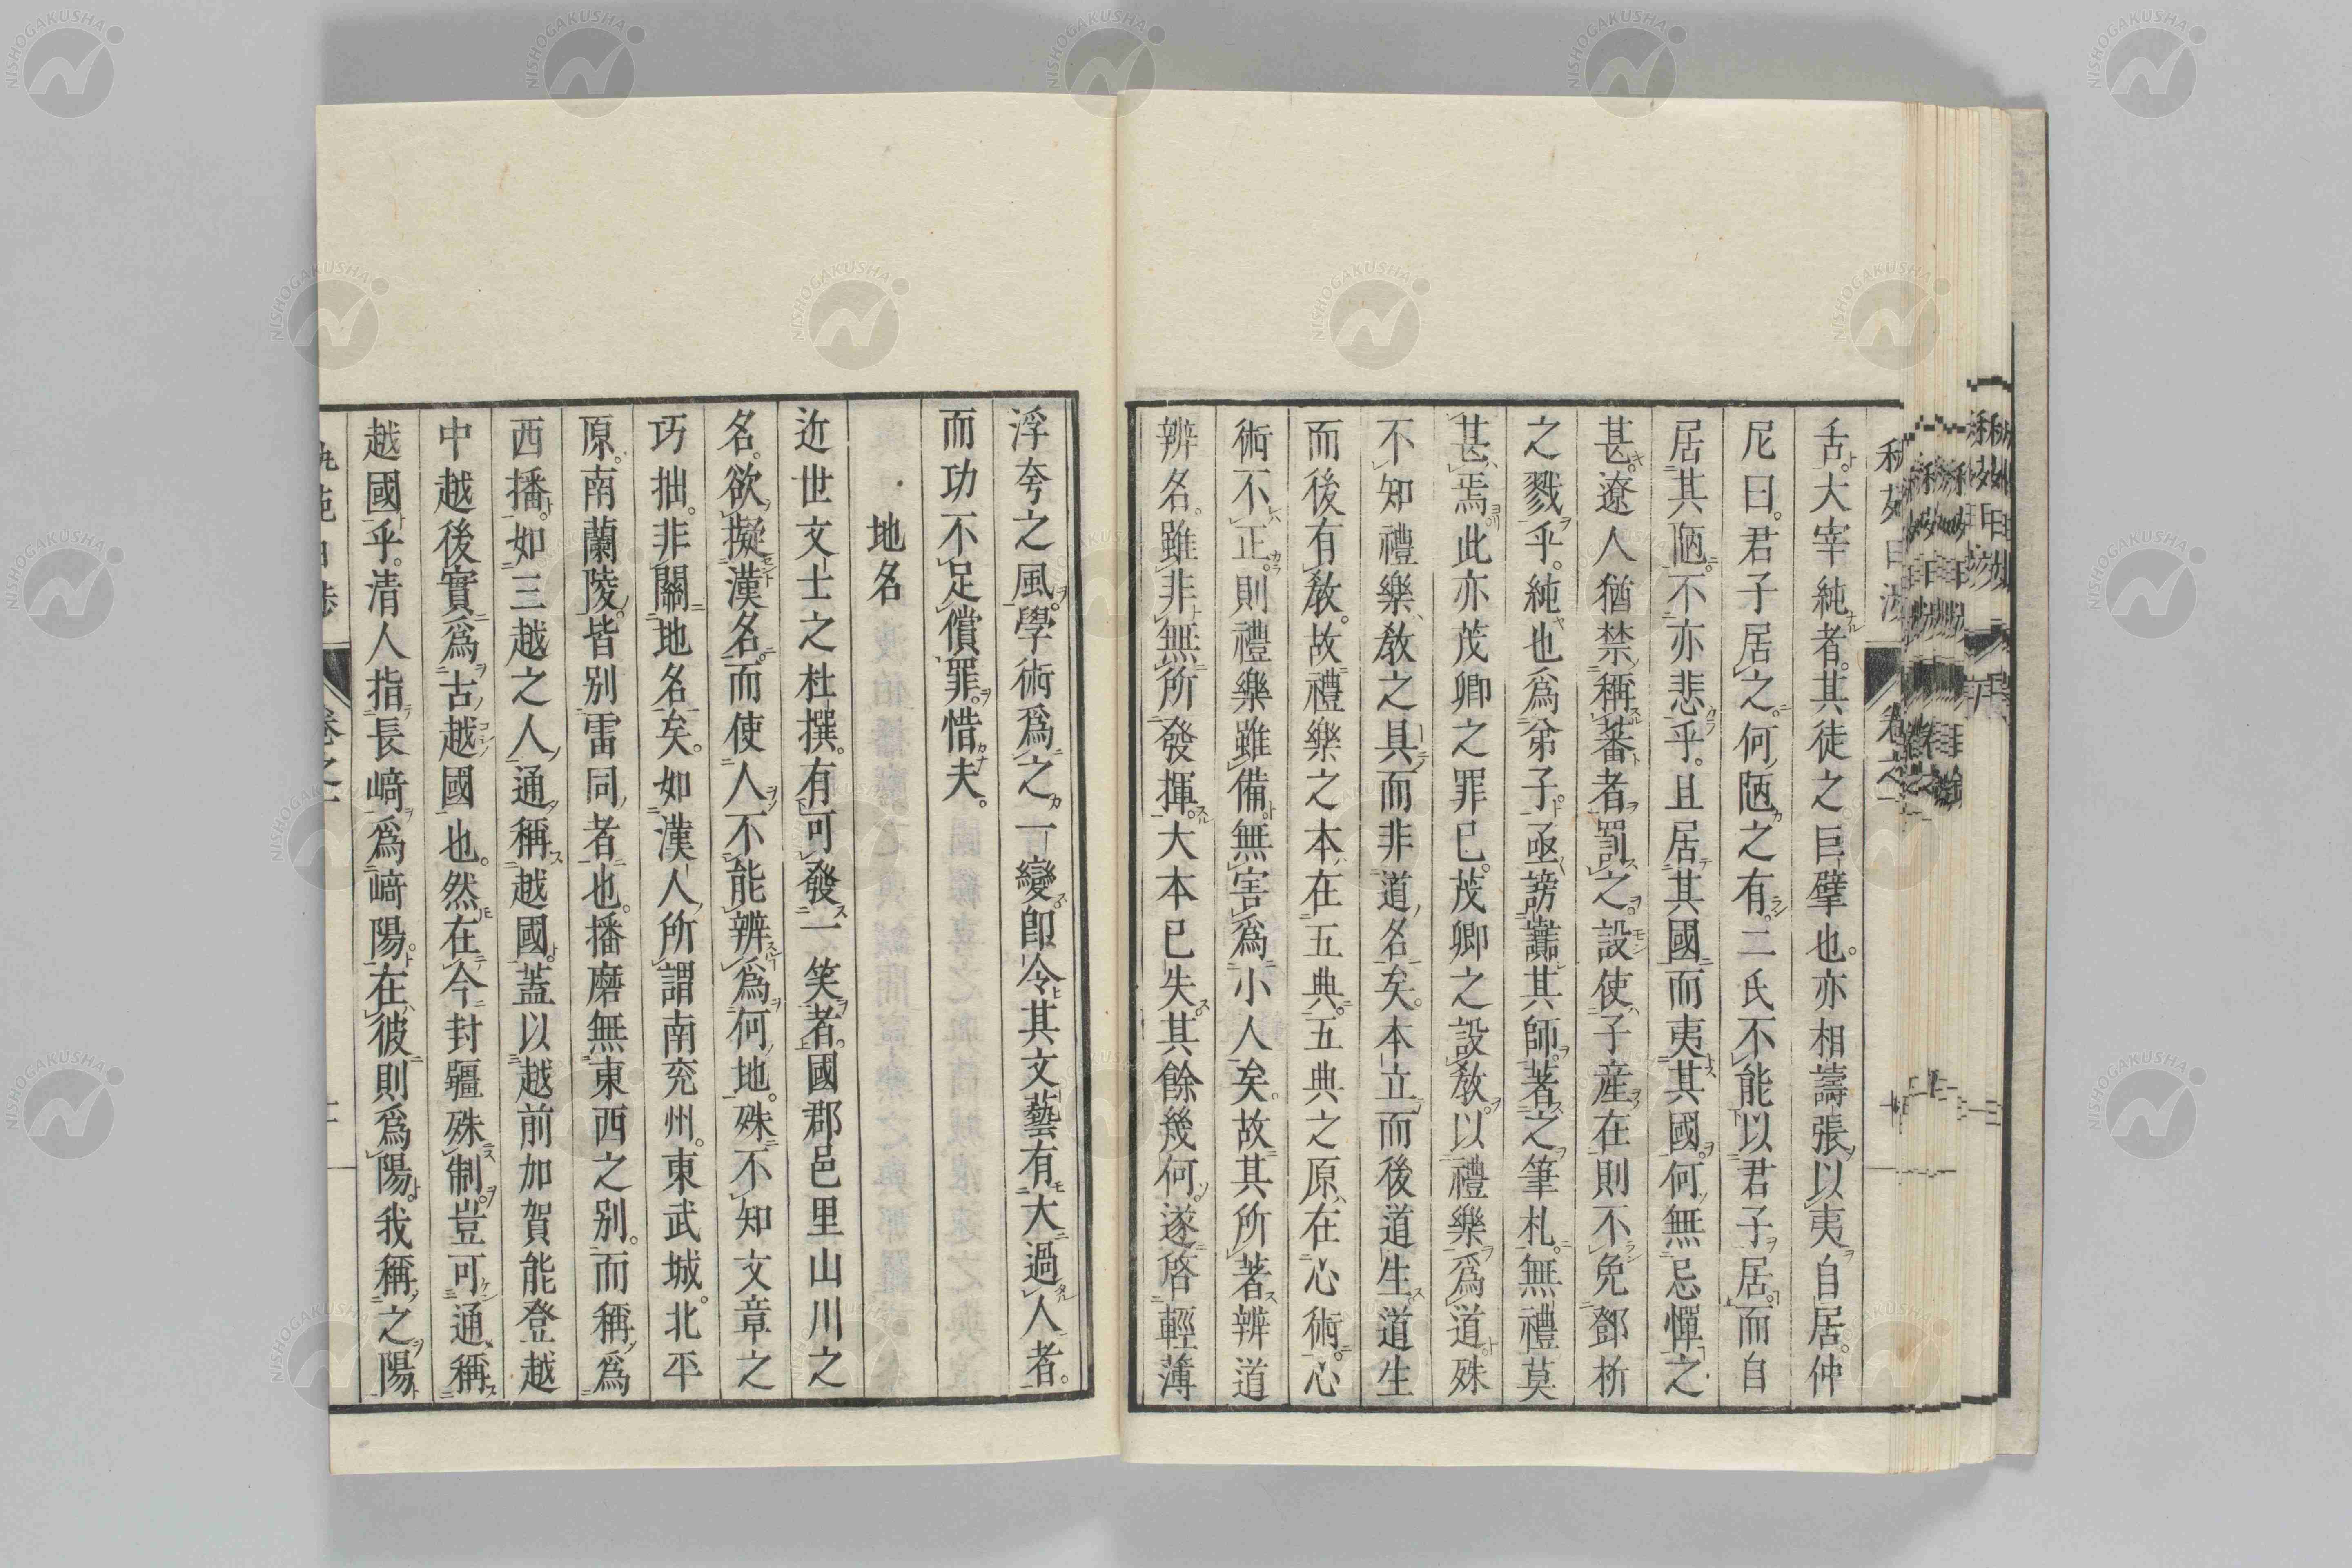 舌。大宰純者。其徒之巨擘也。亦相譸張以夷自居。仲
尼曰。君子居之。何陋之有。二氏不能以君子居。而自
居其陋。不亦悲乎。且居其國。而夷其國。何無忌憚之
甚。遼人猶禁稱蕃者罰之。設使子產在則不免鄧析
之戮乎。純也爲弟子。亟謗讟其師。著之筆札。無禮莫
甚焉。此亦茂卿之罪已。茂卿之設敎。以禮樂爲道。殊
不知禮樂敎之具。而非道名矣。本立而後道生。道生
而後有敎。故禮樂之本。在五典。五典之原。在心術。心
術不正。則禮樂雖備。無害爲小人矣。故其所著辨道
辨名。雖非無所發揮。大本已失。其餘幾何。遂啓輕薄
浮夸之風。學術爲之一變。卽令其文藝有大過人者。
而功不足償罪。惜夫。
地名
近世文士之杜撰。有可發一笑者。國郡邑里山川之
名。欲擬漢名。而使人不能辨爲何地。殊不知文章之
巧拙。非關地名矣。如漢人所謂南兖州。東武城。北平
原。南蘭陵。皆別雷同者也。播磨無東西之別。而稱爲
西播。如三越之人。通稱越國。蓋以越前加賀能登越
中越後實爲古越國也。然在今封疆殊制。豈可通稱
越國乎。清人指長﨑爲﨑陽。在彼則爲陽。我稱之陽
卷之一